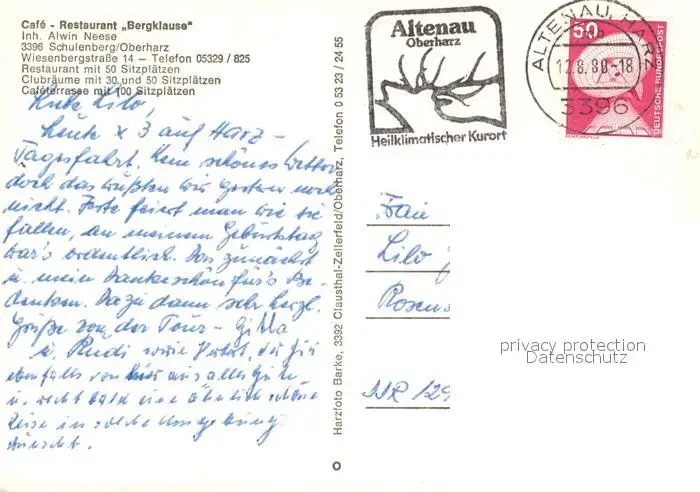 Café - Restaurant „Bergklause"
Inh. Alwin Neese
3396 Schulenberg/Oberharz
Wiesenbergstraße 14 — Telefon 05329 / 825
Restaurant mit 50 Sitzplätzen
Clubräume mit 30 und 50 Sitzplätzen
Caféterrasse mit 100 Sitzplätzen
Lilo,
Heute x 3 auf Harz -
Tagesfahrt. Kein schönes Wetter
doch das wußten wir gestern noch
nicht. Feste feiert man wie sie
fallen, an meinem Geburtstag
war's ordentlich. Das zunächst
u. mein Dankeschön für's Be-
denken. Dazu dann sehr herzl.
Grüße von der Tour - Gilla
u. Rudi sowie der Dir
ebenfalls von hier aus alles Gute
u. recht bald eine ähnlich schöne
Reise in solche Umgebung
wünscht.
Harzfoto Barke, 3392 Clausthal-Zellerfeld/Oberharz, Telefon 0 53 23 / 24 55
Altenau
Oberharz
Heilklimatischer Kurort
ALTENAU, HARZ
12.8.80-18
3396
50
DEUTSCHE BUNDESPOST
Lilo
Rosens
privacy protection
Datenschutz